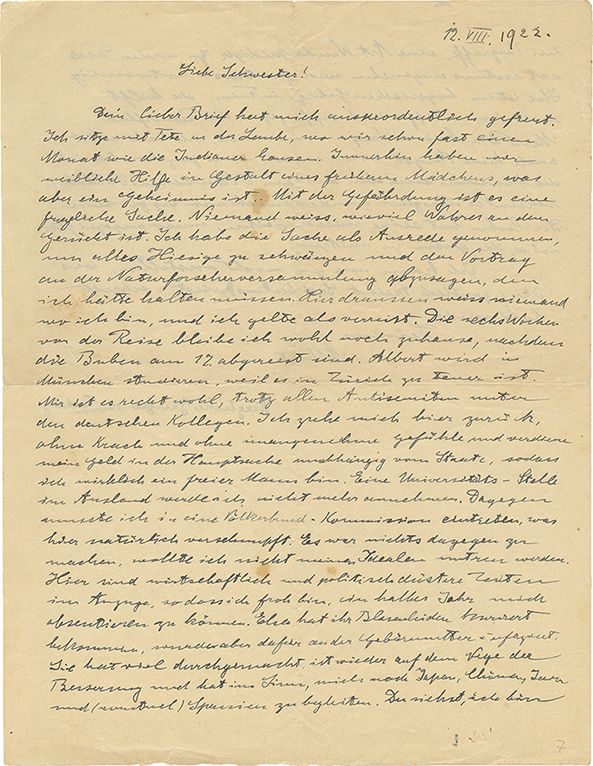 12. VIII. 1922.
Liebe Schwester!
Dein lieber Brief hat mich ausserordentlich gefreut.
Ich sitze mit Tete in der Laube, wo wir schon fast einen
Monat wie die Indianer hausen. Immerhin haben wir
weibliche Hilfe in Gestalt eines früheren Mädchens, was
aber ein Geheimnis ist. Mit der Gefährdung ist es eine
fragliche Sache. Niemand weiss, wieviel Wahres an dem
Gerücht ist. Ich habe die Sache als Ausrede genommen,
um alles Hiesige zu schwänzen und den Vortrag
an der Naturforscherversammlung abzusagen, den
ich hätte halten müssen. Hier draussen weiss niemand
wo ich bin, und ich gelte als verreist. Die sechs Wochen
vor der Reise bleibe ich wohl noch zuhause, nachdem
die Buben am 17. abgereist sind. Albert wird in
München studieren, weil es in Zürich zu teuer ist.
Mir ist es recht wohl, trotz allen Antisemiten unter
den deutschen Kollegen. Ich ziehe mich hier zurück,
ohne Krach und ohne unangenehme Gefühle und verdiene
mein Geld in der Hauptsache unabhängig vom Staate, sodass
ich wirklich ein freier Mann bin. Eine Universitäts-Stelle
im Ausland werde ich nicht mehr annehmen. Dagegen
musste ich in eine Völkerbund-Kommission eintreten, was
hier natürlich verschnupft. Es war nichts dagegen zu
machen, wollte ich nicht meinen Idealen untreu werden.
Hier sind wirtschaftlich und politisch düstere Zeiten
im Anzuge, so dass ich froh bin, ein halbes Jahr mich
absentieren zu können. Elsa hat ihr Blasenleiden
bekommen, wurde aber dafür an der Gebärmutter
Sie hat viel durchgemacht, ist wieder auf dem Wege der
Besserung und hat im Sinn, mich nach Japan, China, Java
und (eventuel) Spanien zu begleiten. Du siehst, ich bin
7